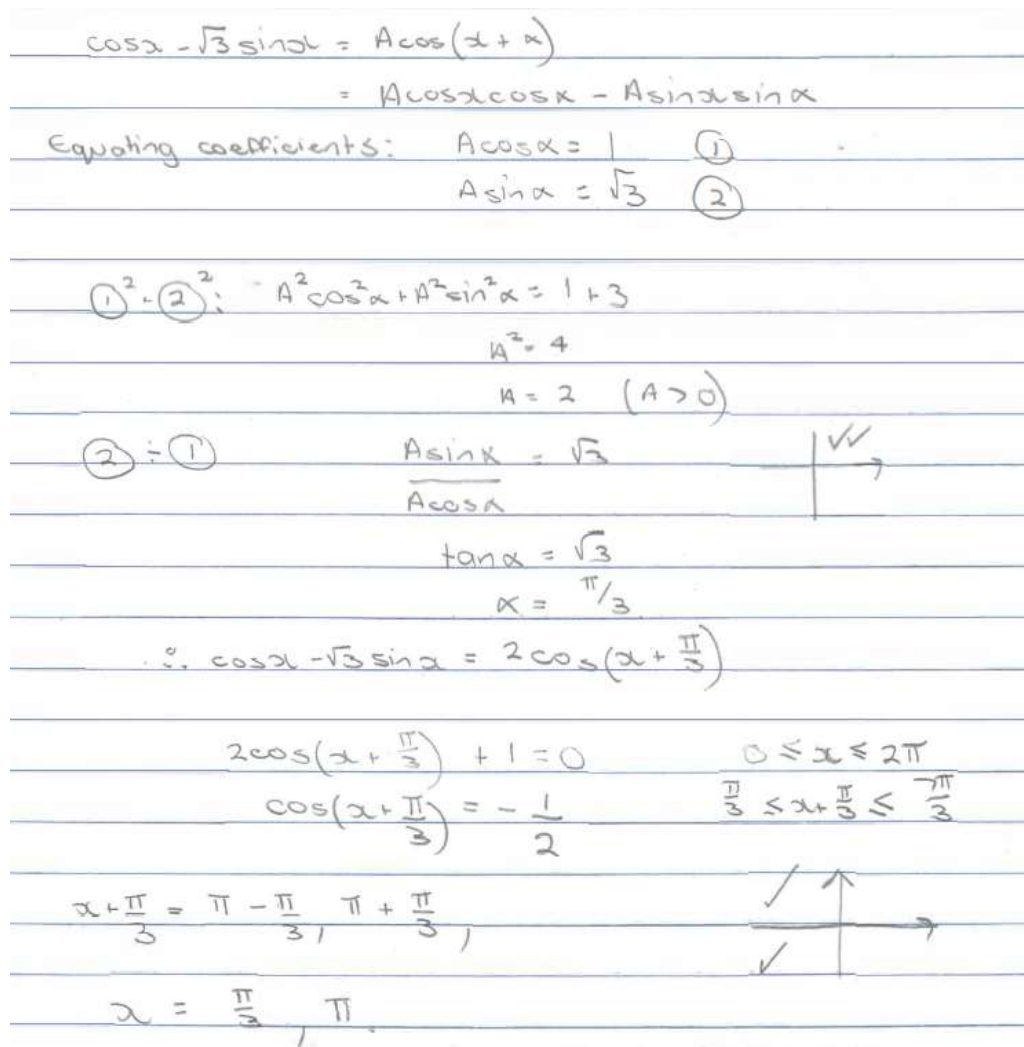 cosx - √3 sinx = Acos(x + α)
= Acosxcosα - Asinxsinα
Equating coefficients: Acosα = 1 ①
Asinα = √3 ②
①² + ②²: A²cos²α + A²sin²α = 1 + 3
A² = 4
A = 2 (A > 0)
② ÷ ① Asinα / Acosα = √3 ✓✓
tanα = √3
α = π/3
∴ cosx - √3 sinx = 2cos(x + π/3)
2cos(x + π/3) + 1 = 0 0 ≤ x ≤ 2π
cos(x + π/3) = - 1/2 π/3 ≤ x + π/3 ≤ 7π/3
x + π/3 = π - π/3, π + π/3, ✓ ✓
x = π/3, π.